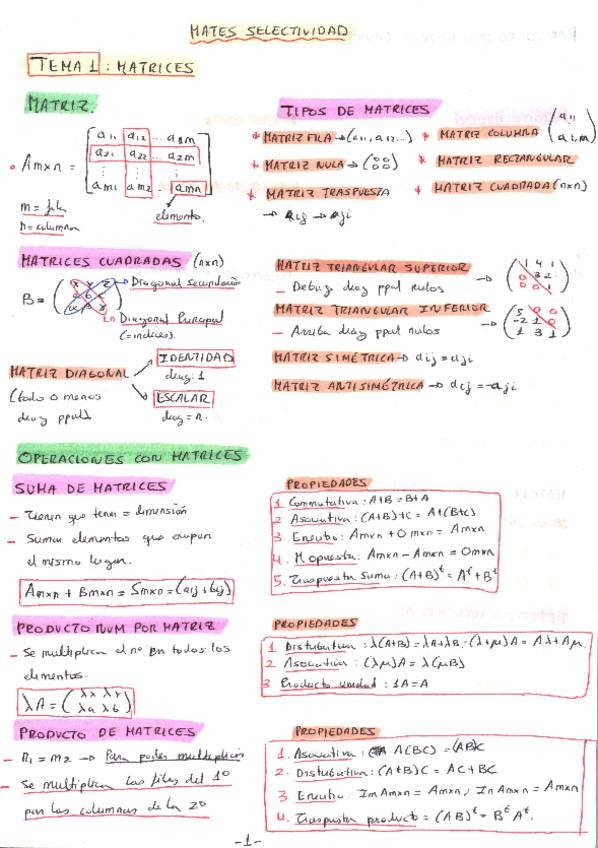 MATES SELECTIVIDAD
TEMA 1 : MATRICES
MATRIZ.
Amxn = [a11 a12 ... a2m
a21 a22 ... a2m
⋮ ⋮ ⋮
am1 am2 ... amn]
elemento.
m = fila
n = columna
TIPOS DE MATRICES
* MATRIZ FILA → (a11, a12...)
* MATRIZ COLUMNA (a11
a2,m)
* MATRIZ NULA → (0 0
0 0)
* MATRIZ RECTANGULAR
* MATRIZ TRASPUESTA
→ aij → aji
* MATRIZ CUADRADA (nxn)
MATRICES CUADRADAS (nxn)
B =
Diagonal secundaria
Diagonal Principal
(= indices).
MATRIZ DIAGONAL
(todo 0 menos
diag ppal)
IDENTIDAD
diag: 1
ESCALAR
diag = n.
MATRIZ TRIANGULAR SUPERIOR
- Debajo diag ppal nulos → (1 4 1
0 3 2
0 0 1)
MATRIZ TRIANGULAR INFERIOR
- Arriba diag ppal nulos → (5 0 0
-2 1 0
1 3 1)
MATRIZ SIMÉTRICA → aij = aji
MATRIZ ANTISIMÉTRICA → aij = -aji
OPERACIONES CON MATRICES
SUMA DE MATRICES
- Tienen que tener = dimensión
- Suman elementos que ocupan
el mismo lugar.
Amxn + Bmxn = Smxn = (aij + bij)
PROPIEDADES
1 Conmutativa : A+B = B+A
2 Asociativa : (A+B)+C = A+(B+C)
3 E neutro : Amxn + 0mxn = Amxn
4. M opuesta : Amxn - Amxn = 0mxn
5. Traspuesta Suma : (A+B)ᵗ = Aᵗ + Bᵗ
PRODUCTO NUM POR MATRIZ
- Se multiplica el nº en todos los
elementos.
λA = (λx λy
λa λb)
PROPIEDADES
1 Distributiva : λ(A+B) = λA + λB · (λ+μ)A = Aλ + Aμ.
2 Asociativa : (λμ)A = λ(μB)
3 Producto unidad : 1A = A
PRODUCTO DE MATRICES
- n1 = m2 → Para poder multiplicar
- Se multiplica las filas del 1º
por las columnas de la 2º
PROPIEDADES
1. Asociativa : A(BC) = (AB)C
2. Distributiva : (A+B)C = AC + BC
3 E neutro : Im Amxn = Amxn ; In Amxn = Amxn
4. Traspuesta producto = (AB)ᵗ = Bᵗ Aᵗ.
-1-